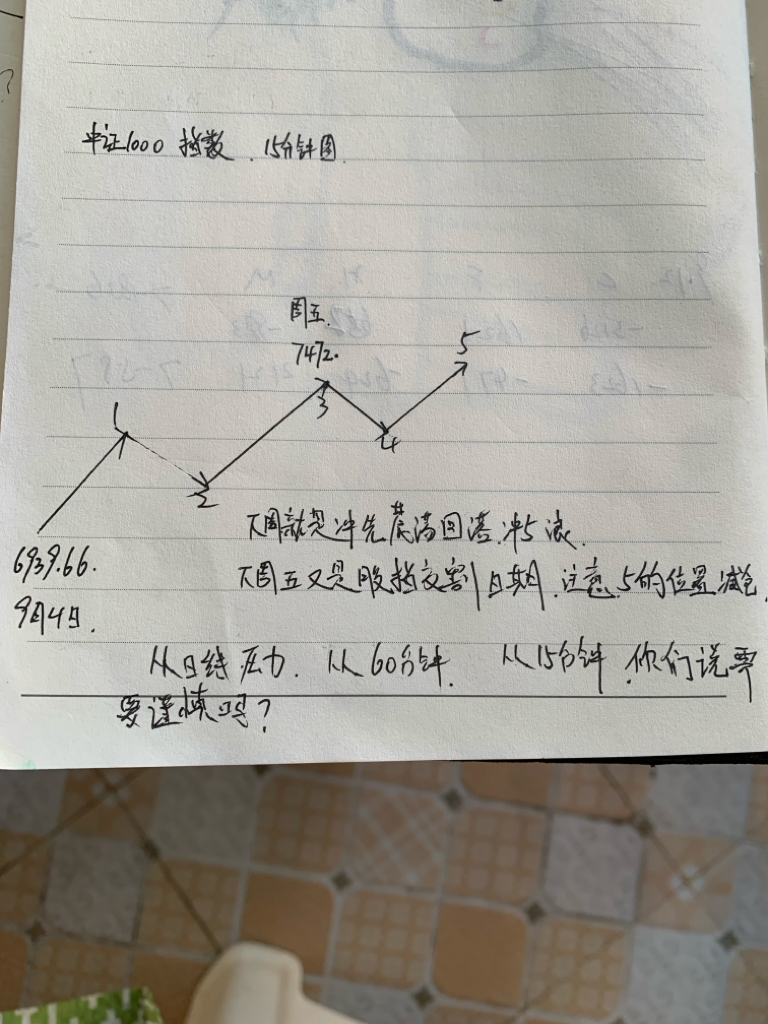 中证1000 指数 . 15分钟图
周五.
7472.
1
5
3
4
2
下周就是冲先震荡回落.冲5浪.
6939.66.
下周五又是股指交割日期.注意5的位置减仓.
9月4日.
从日线压力. 从60分钟. 从15分钟.你们说需
要谨慎吗?